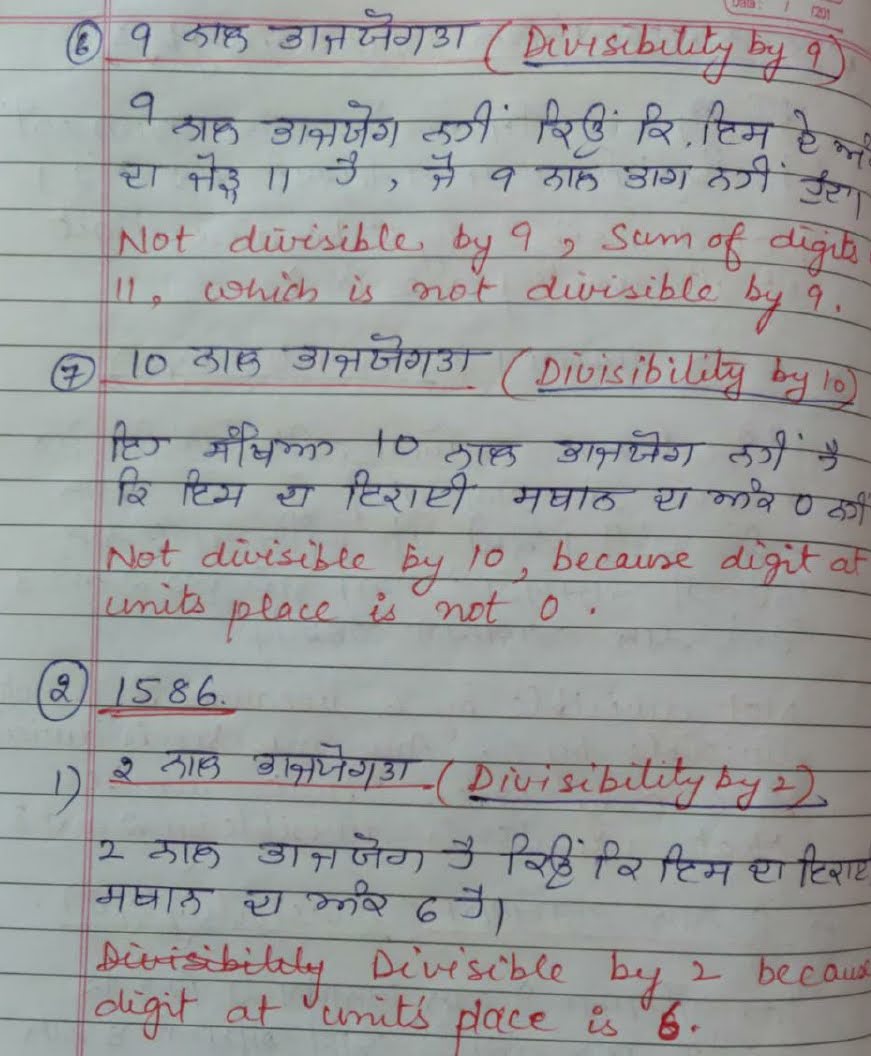 Data : / /201
⑥ 9 ਨਾਲ ਭਾਜਯੋਗਤਾ (Divisibility by 9)
9 ਨਾਲ ਭਾਜਯੋਗ ਨਹੀਂ ਕਿਉਂ ਕਿ. ਇਸ ਦੇ
ਦਾ ਜੋੜ 11 ਹੈ, ਜੋ 9 ਨਾਲ ਭਾਗ ਨਹੀਂ ਹੁੰਦਾ।
Not divisible by 9, Sum of digits
11, which is not divisible by 9.
⑦ 10 ਨਾਲ ਭਾਜਯੋਗਤਾ (Divisibility by 10)
ਇਹ ਸੰਖਿਆ 10 ਨਾਲ ਭਾਜਯੋਗ ਨਹੀਂ ਹੈ
ਕਿ ਇਸ ਦਾ ਇਕਾਈ ਸਥਾਨ ਦਾ ਅੰਕ 0 ਨਹੀਂ
Not divisible by 10, because digit at
units place is not 0.
② 1586.
1) 2 ਨਾਲ ਭਾਜਯੋਗਤਾ (Divisibility by 2)
2 ਨਾਲ ਭਾਜਯੋਗ ਹੈ ਕਿਉਂ ਕਿ ਇਸ ਦਾ ਇਕਾਈ
ਸਥਾਨ ਦਾ ਅੰਕ 6 ਹੈ।
Divisibility Divisible by 2 because
digit at unit's place is 6.